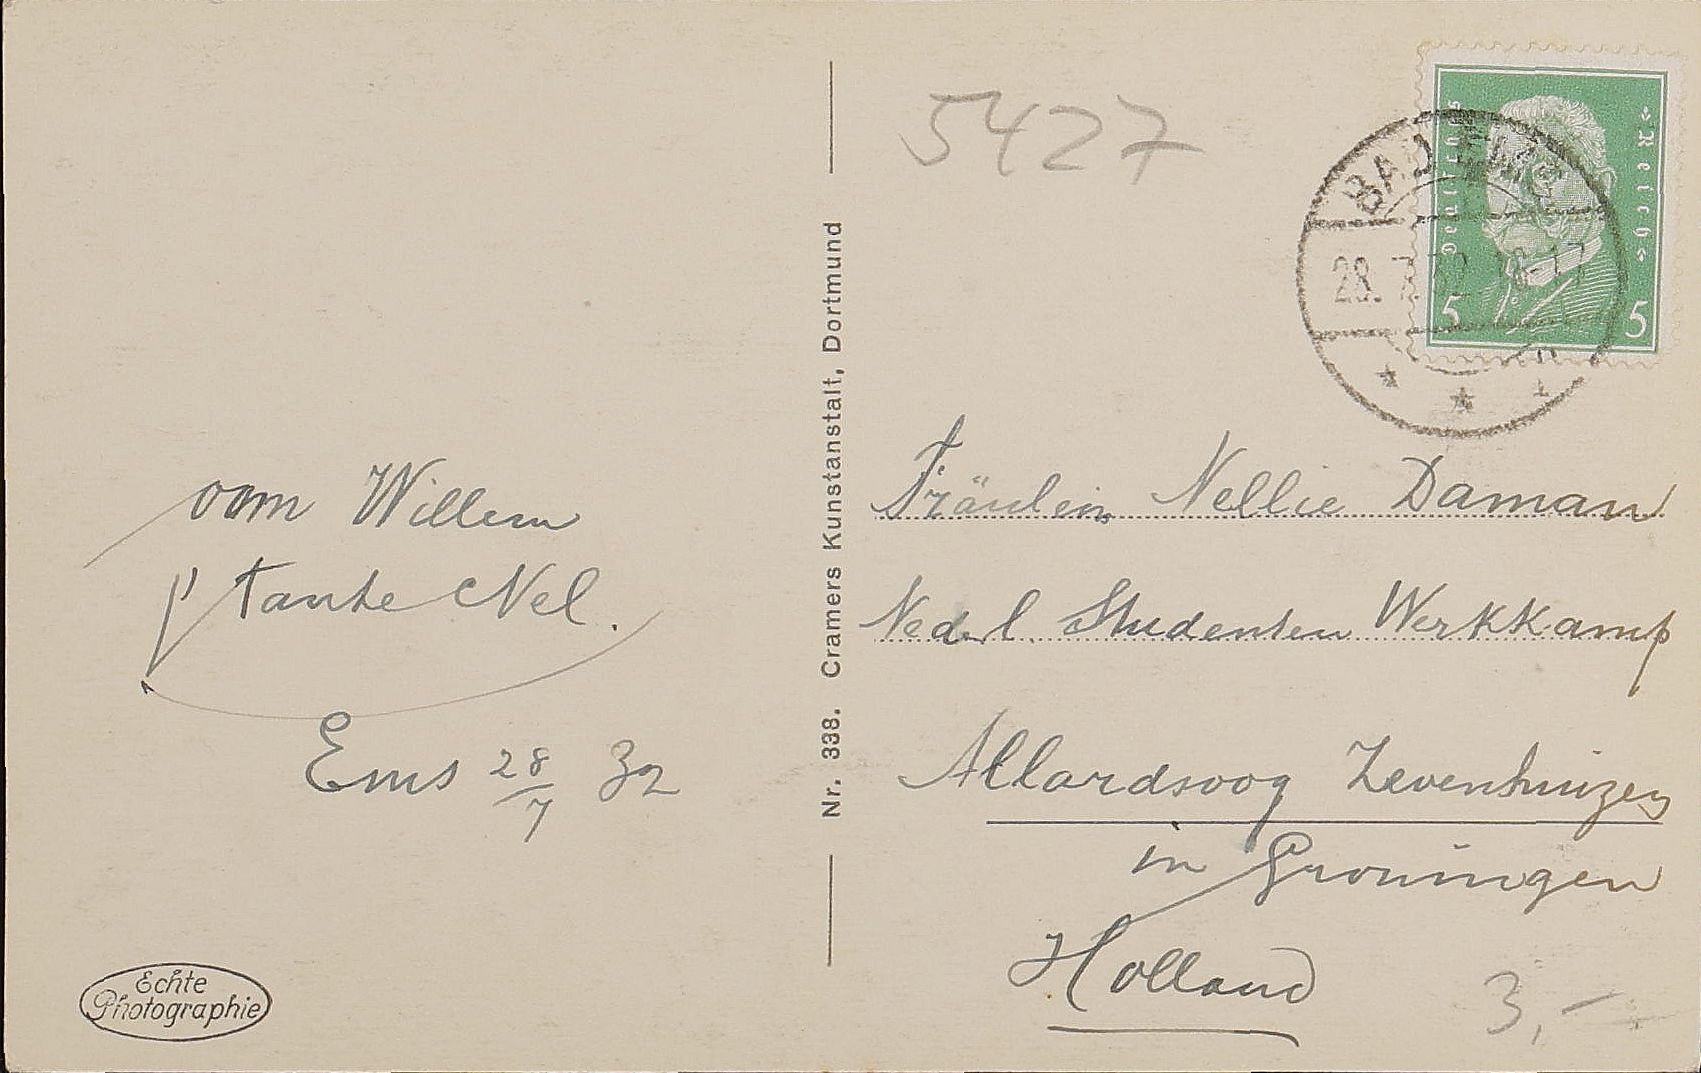 oom Willem
& tante Nel.
Ems 28/7 32
Echte
Photographie
Nr. 338. Cramers Kunstanstalt, Dortmund
5427
Deutsches «Reich»
5 5
BAD EMS
28. 7. 32 16-17
Fräulein Nellie Daman
Nederl. Studenten Werkkamp
Allardsoog Zevenhuizen
in Groningen
Holland
3,-